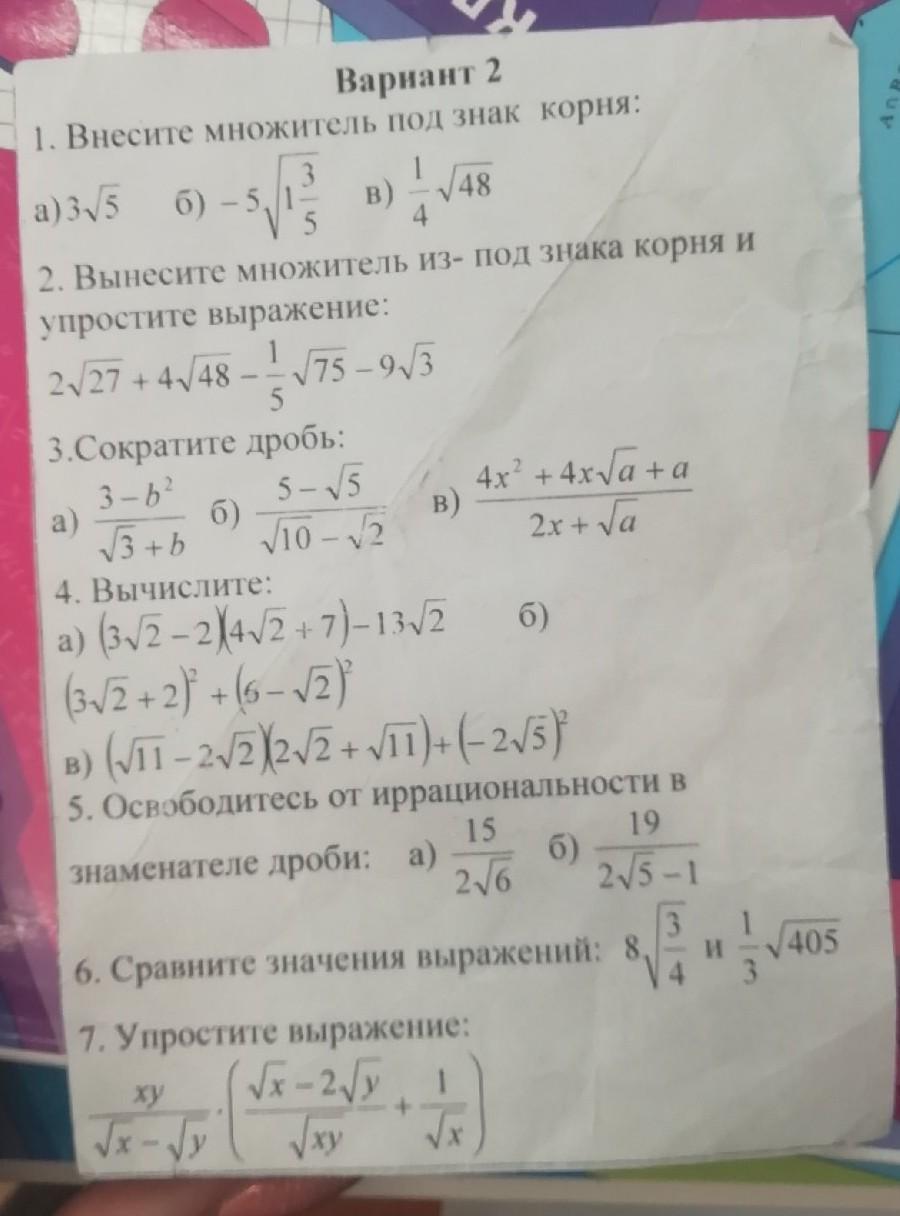 Вариант 2
1. Внесите множитель под знак корня:
а) 3√5 б) −5√(1 3/5) в) 1/4 √48
2. Вынесите множитель из- под знака корня и
упростите выражение:
2√27 + 4√48 − 1/5 √75 − 9√3
3.Сократите дробь:
а) (3 − b²)/(√3 + b) б) (5 − √5)/(√10 − √2) в) (4x² + 4x√a + a)/(2x + √a)
4. Вычислите:
а) (3√2 − 2)(4√2 + 7) − 13√2 б)
(3√2 + 2)² + (6 − √2)²
в) (√11 − 2√2)(2√2 + √11) + (−2√5)²
5. Освободитесь от иррациональности в
знаменателе дроби: а) 15/(2√6) б) 19/(2√5 − 1)
6. Сравните значения выражений: 8√(3/4) и 1/3 √405
7. Упростите выражение:
xy/(√x − √y) · ((√x − 2√y)/√xy + 1/√x)